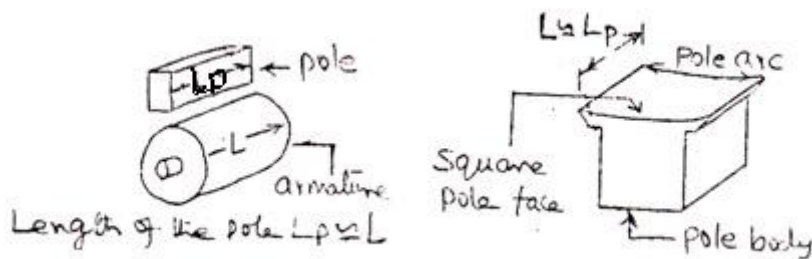 Lp
pole
L
armature
Length of the pole Lp ≈ L
L ≈ Lp
Pole arc
Square
Pole face
pole body